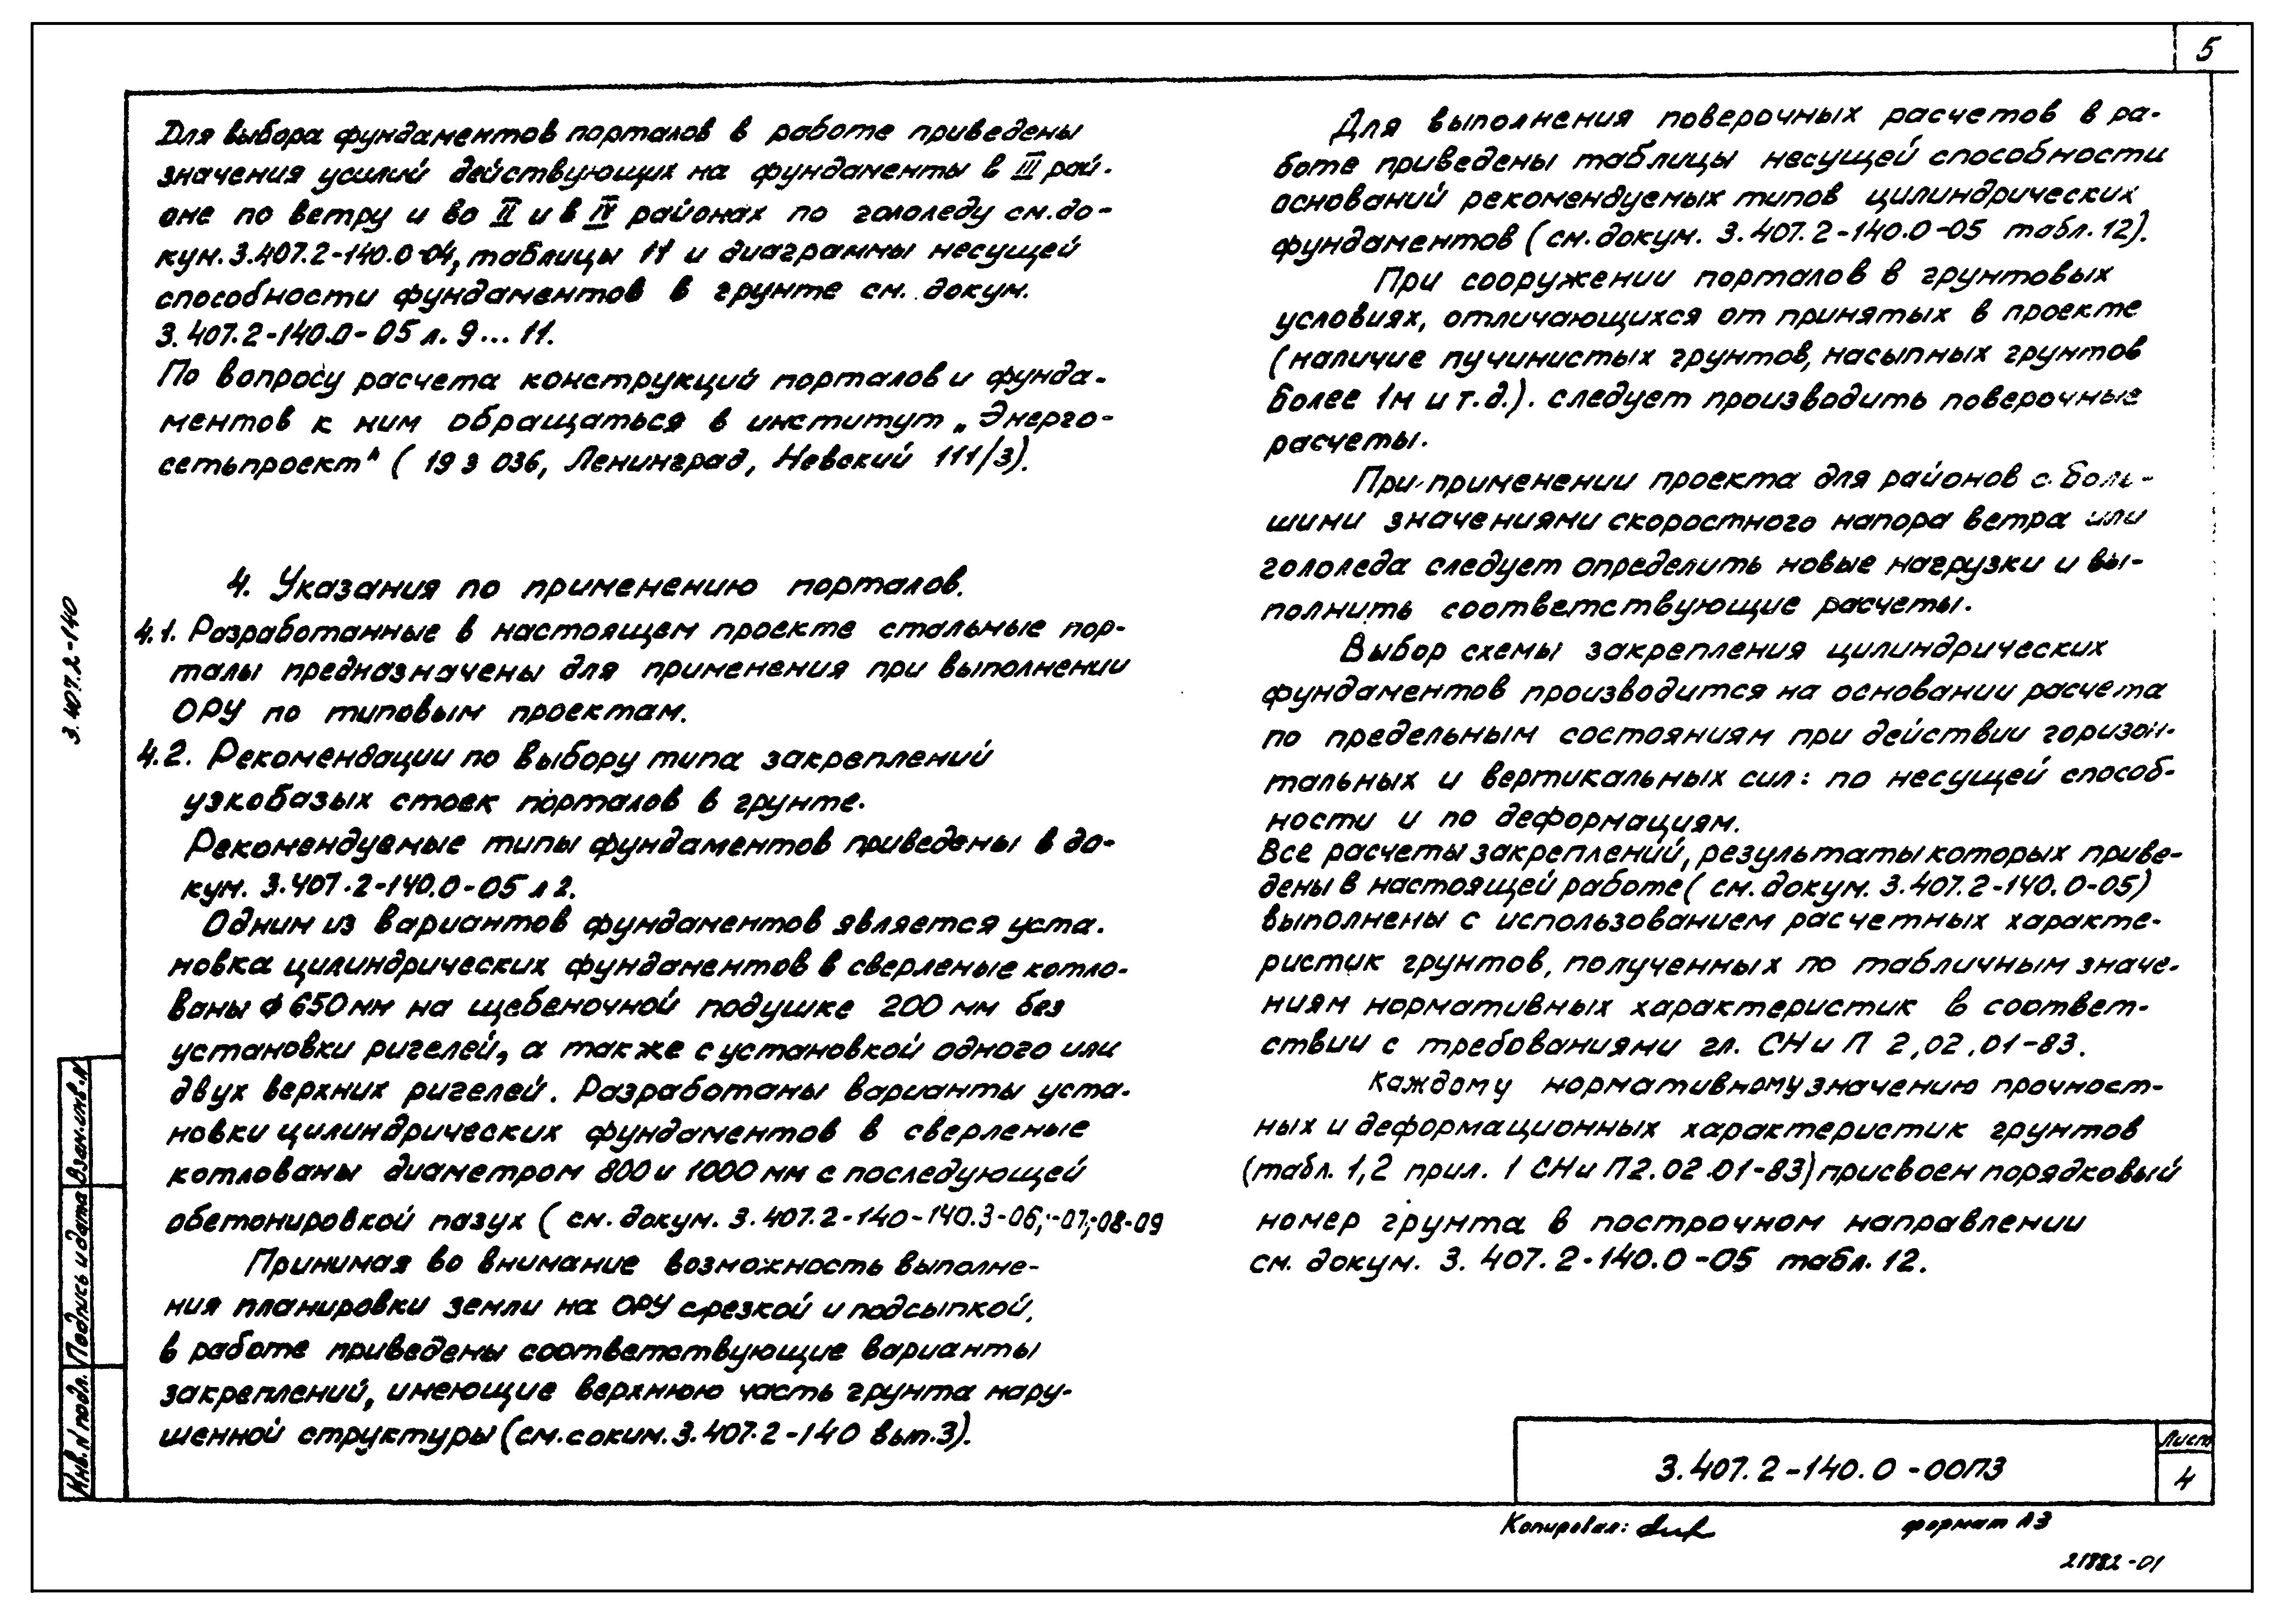 5
Для выбора фундаментов порталов в работе приведены
значения усилий действующих на фундаменты в III рай-
оне по ветру и во II и в IV районах по гололеду см. до-
кум. 3.407.2-140.0-04, таблицы 11 и диаграммы несущей
способности фундаментов в грунте см. докум.
3.407.2-140.0-05 л. 9...11.
По вопросу расчета конструкций порталов и фунда-
ментов к ним обращаться в институт „Энерго-
сетьпроект" (193036, Ленинград, Невский 111/3).
4. Указания по применению порталов.
4.1. Разработанные в настоящем проекте стальные пор-
талы предназначены для применения при выполнении
ОРУ по типовым проектам.
4.2. Рекомендации по выбору типа закреплений
узкобазых стоек порталов в грунте.
Рекомендуемые типы фундаментов приведены в до-
кум. 3.407.2-140.0-05 л 2.
Одним из вариантов фундаментов является уста-
новка цилиндрических фундаментов в сверленые котло-
ваны ϕ 650 мм на щебеночной подушке 200 мм без
установки ригелей, а также с установкой одного или
двух верхних ригелей. Разработаны варианты уста-
новки цилиндрических фундаментов в сверленые
котлованы диаметром 800 и 1000 мм с последующей
обетонировкой пазух (см. докум. 3.407.2-140-140.3-06;-07;08-09
Принимая во внимание возможность выполне-
ния планировки земли на ОРУ срезкой и подсыпкой,
в работе приведены соответствующие варианты
закреплений, имеющие верхнюю часть грунта нару-
шенной структуры (см. соким. 3.407.2-140 вып.3).
Для выполнения поверочных расчетов в ра-
боте приведены таблицы несущей способности
оснований рекомендуемых типов цилиндрических
фундаментов (см. докум. 3.407.2-140.0-05 табл. 12).
При сооружении порталов в грунтовых
условиях, отличающихся от принятых в проекте
(наличие пучинистых грунтов, насыпных грунтов
более 1м и т.д.). следует производить поверочные
расчеты.
При применении проекта для районов с боль-
шими значениями скоростного напора ветра или
гололеда следует определить новые нагрузки и вы-
полнить соответствующие расчеты.
Выбор схемы закрепления цилиндрических
фундаментов производится на основании расчета
по предельным состояниям при действии горизон-
тальных и вертикальных сил: по несущей способ-
ности и по деформациям.
Все расчеты закреплений, результаты которых приве-
дены в настоящей работе (см. докум. 3.407.2-140.0-05)
выполнены с использованием расчетных характе-
ристик грунтов, полученных по табличным значе-
ниям нормативных характеристик в соответ-
ствии с требованиями гл. СНиП 2.02.01-83.
Каждому нормативному значению прочност-
ных и деформационных характеристик грунтов
(табл. 1,2 прил. 1 СНиП 2.02.01-83) присвоен порядковый
номер грунта в построчном направлении
см. докум. 3.407.2-140.0-05 табл. 12.
3.407.2-140
Взам. инв. N
Подпись и дата
Инв. N подл.
3.407.2-140.0-00ПЗ
Лист
4
Копировал:
формат А3
21882-01